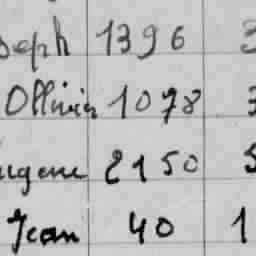 oseph 1396 3
Ollivier 1078 3
ugene 2150 5
Jean 40 1